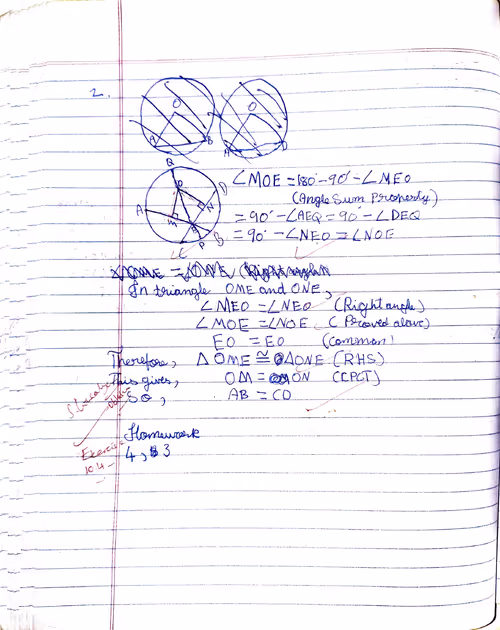 2.
O
O
A B
A D
Q
O D
A
M N
E
P B
C
∠MOE = 180° - 90° - ∠MEO
(Angle Sum Property)
= 90° - ∠AEQ = 90° - ∠DEQ
= 90° - ∠NEO = ∠NOE
In triangle OME and ONE,
∠MEO = ∠NEO (Right angle)
∠MOE = ∠NOE (Proved above)
EO = EO (common)
Therefore, Δ OME ≅ ΔONE (RHS)
This gives, OM = ON (CPCT)
So, AB = CD
Homework
Exercise 4, 3
10.4